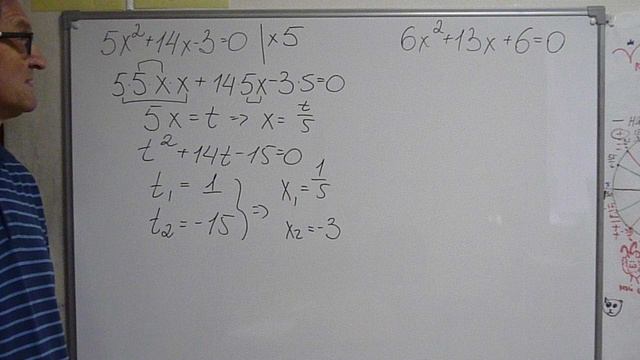 5x²+14x-3=0 | x5
5·5x·x+14 5x-3·5=0
5x=t => x=t/5
t²+14t-15=0
t₁=1
t₂=-15 } =>
x₁=1/5
x₂=-3
6x²+13x+6=0